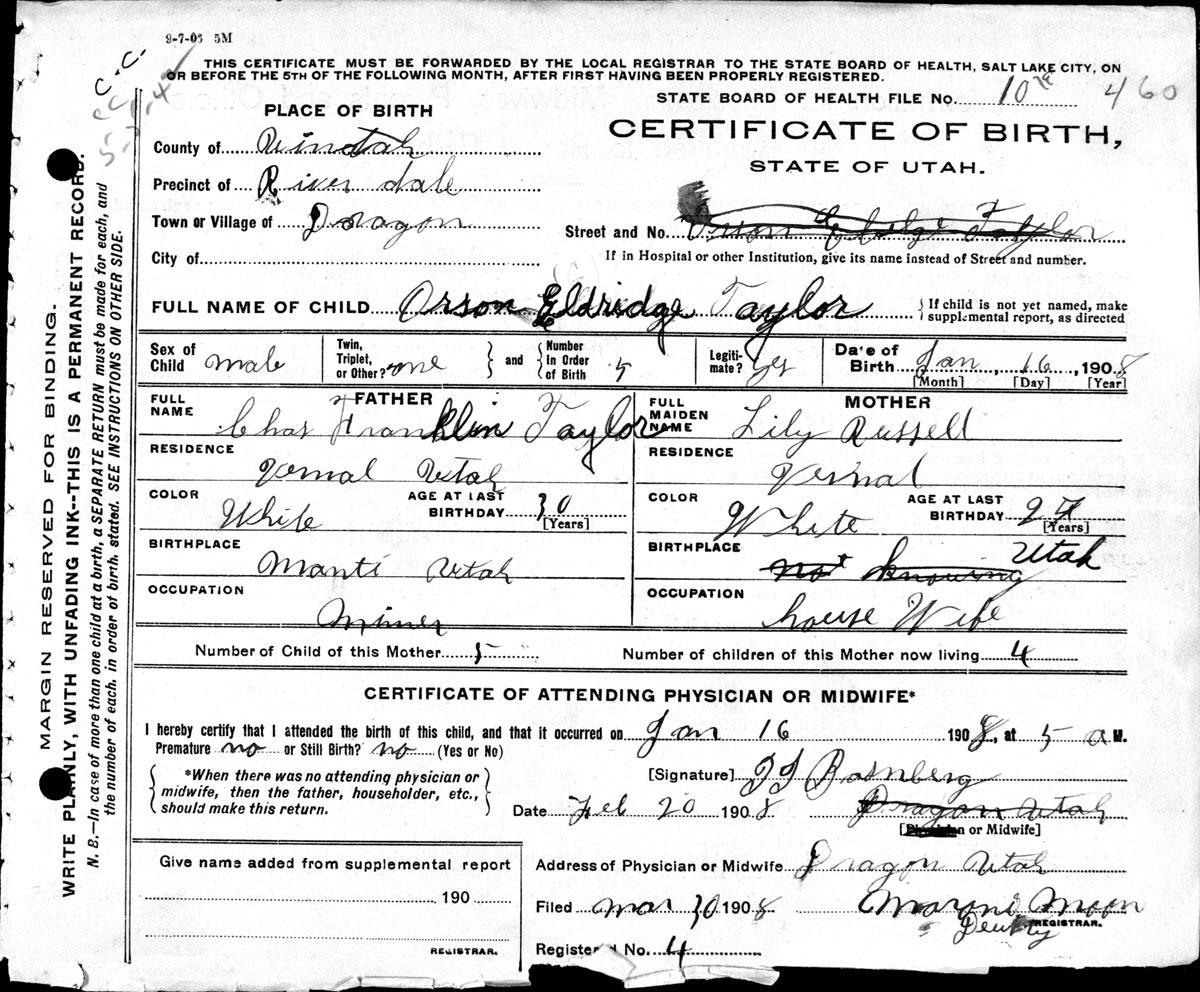 9-7-06 5M
THIS CERTIFICATE MUST BE FORWARDED BY THE LOCAL REGISTRAR TO THE STATE BOARD OF HEALTH, SALT LAKE CITY, ON
OR BEFORE THE 5TH OF THE FOLLOWING MONTH, AFTER FIRST HAVING BEEN PROPERLY REGISTERED.
STATE BOARD OF HEALTH FILE No. 10 460
PLACE OF BIRTH
CERTIFICATE OF BIRTH,
STATE OF UTAH.
County of Uintah
Precinct of River dale
Town or Village of Dragon
Street and No. Orson Eldridge Taylor
City of
If in Hospital or other Institution, give its name instead of Street and number.
FULL NAME OF CHILD Orson Eldridge Taylor { If child is not yet named, make
supplemental report, as directed
Sex of Child male Twin, Triplet, or Other? one and Number In Order of Birth 5 Legiti-mate? yes Date of Birth Jan 16, 1908
[Month] [Day] [Year]
FATHER
FULL NAME Chas Franklin Taylor
RESIDENCE
Vernal Utah
COLOR White AGE AT LAST BIRTHDAY 30
[Years]
BIRTHPLACE
Manti Utah
OCCUPATION
Miner
MOTHER
FULL MAIDEN NAME Lily Russell
RESIDENCE
Vernal
COLOR White AGE AT LAST BIRTHDAY 24
[Years]
BIRTHPLACE
not knowing Utah
OCCUPATION
house Wife
Number of Child of this Mother 5 Number of children of this Mother now living 4
CERTIFICATE OF ATTENDING PHYSICIAN OR MIDWIFE*
I hereby certify that I attended the birth of this child, and that it occurred on Jan 16 1908, at 5 a M.
Premature no or Still Birth? no (Yes or No)
*When there was no attending physician or
midwife, then the father, householder, etc.,
should make this return.
[Signature]
Date Feb 20 1908 Dragon Utah
[Physician or Midwife]
Give name added from supplemental report
190
REGISTRAR.
Address of Physician or Midwife Dragon Utah
Filed Mar 30 1908 Moon
REGISTRAR.
Registered No. 4
MARGIN RESERVED FOR BINDING.
WRITE PLAINLY, WITH UNFADING INK--THIS IS A PERMANENT RECORD.
N. B.—In case of more than one child at a birth, a SEPARATE RETURN must be made for each, and
the number of each, in order of birth, stated. SEE INSTRUCTIONS ON OTHER SIDE.